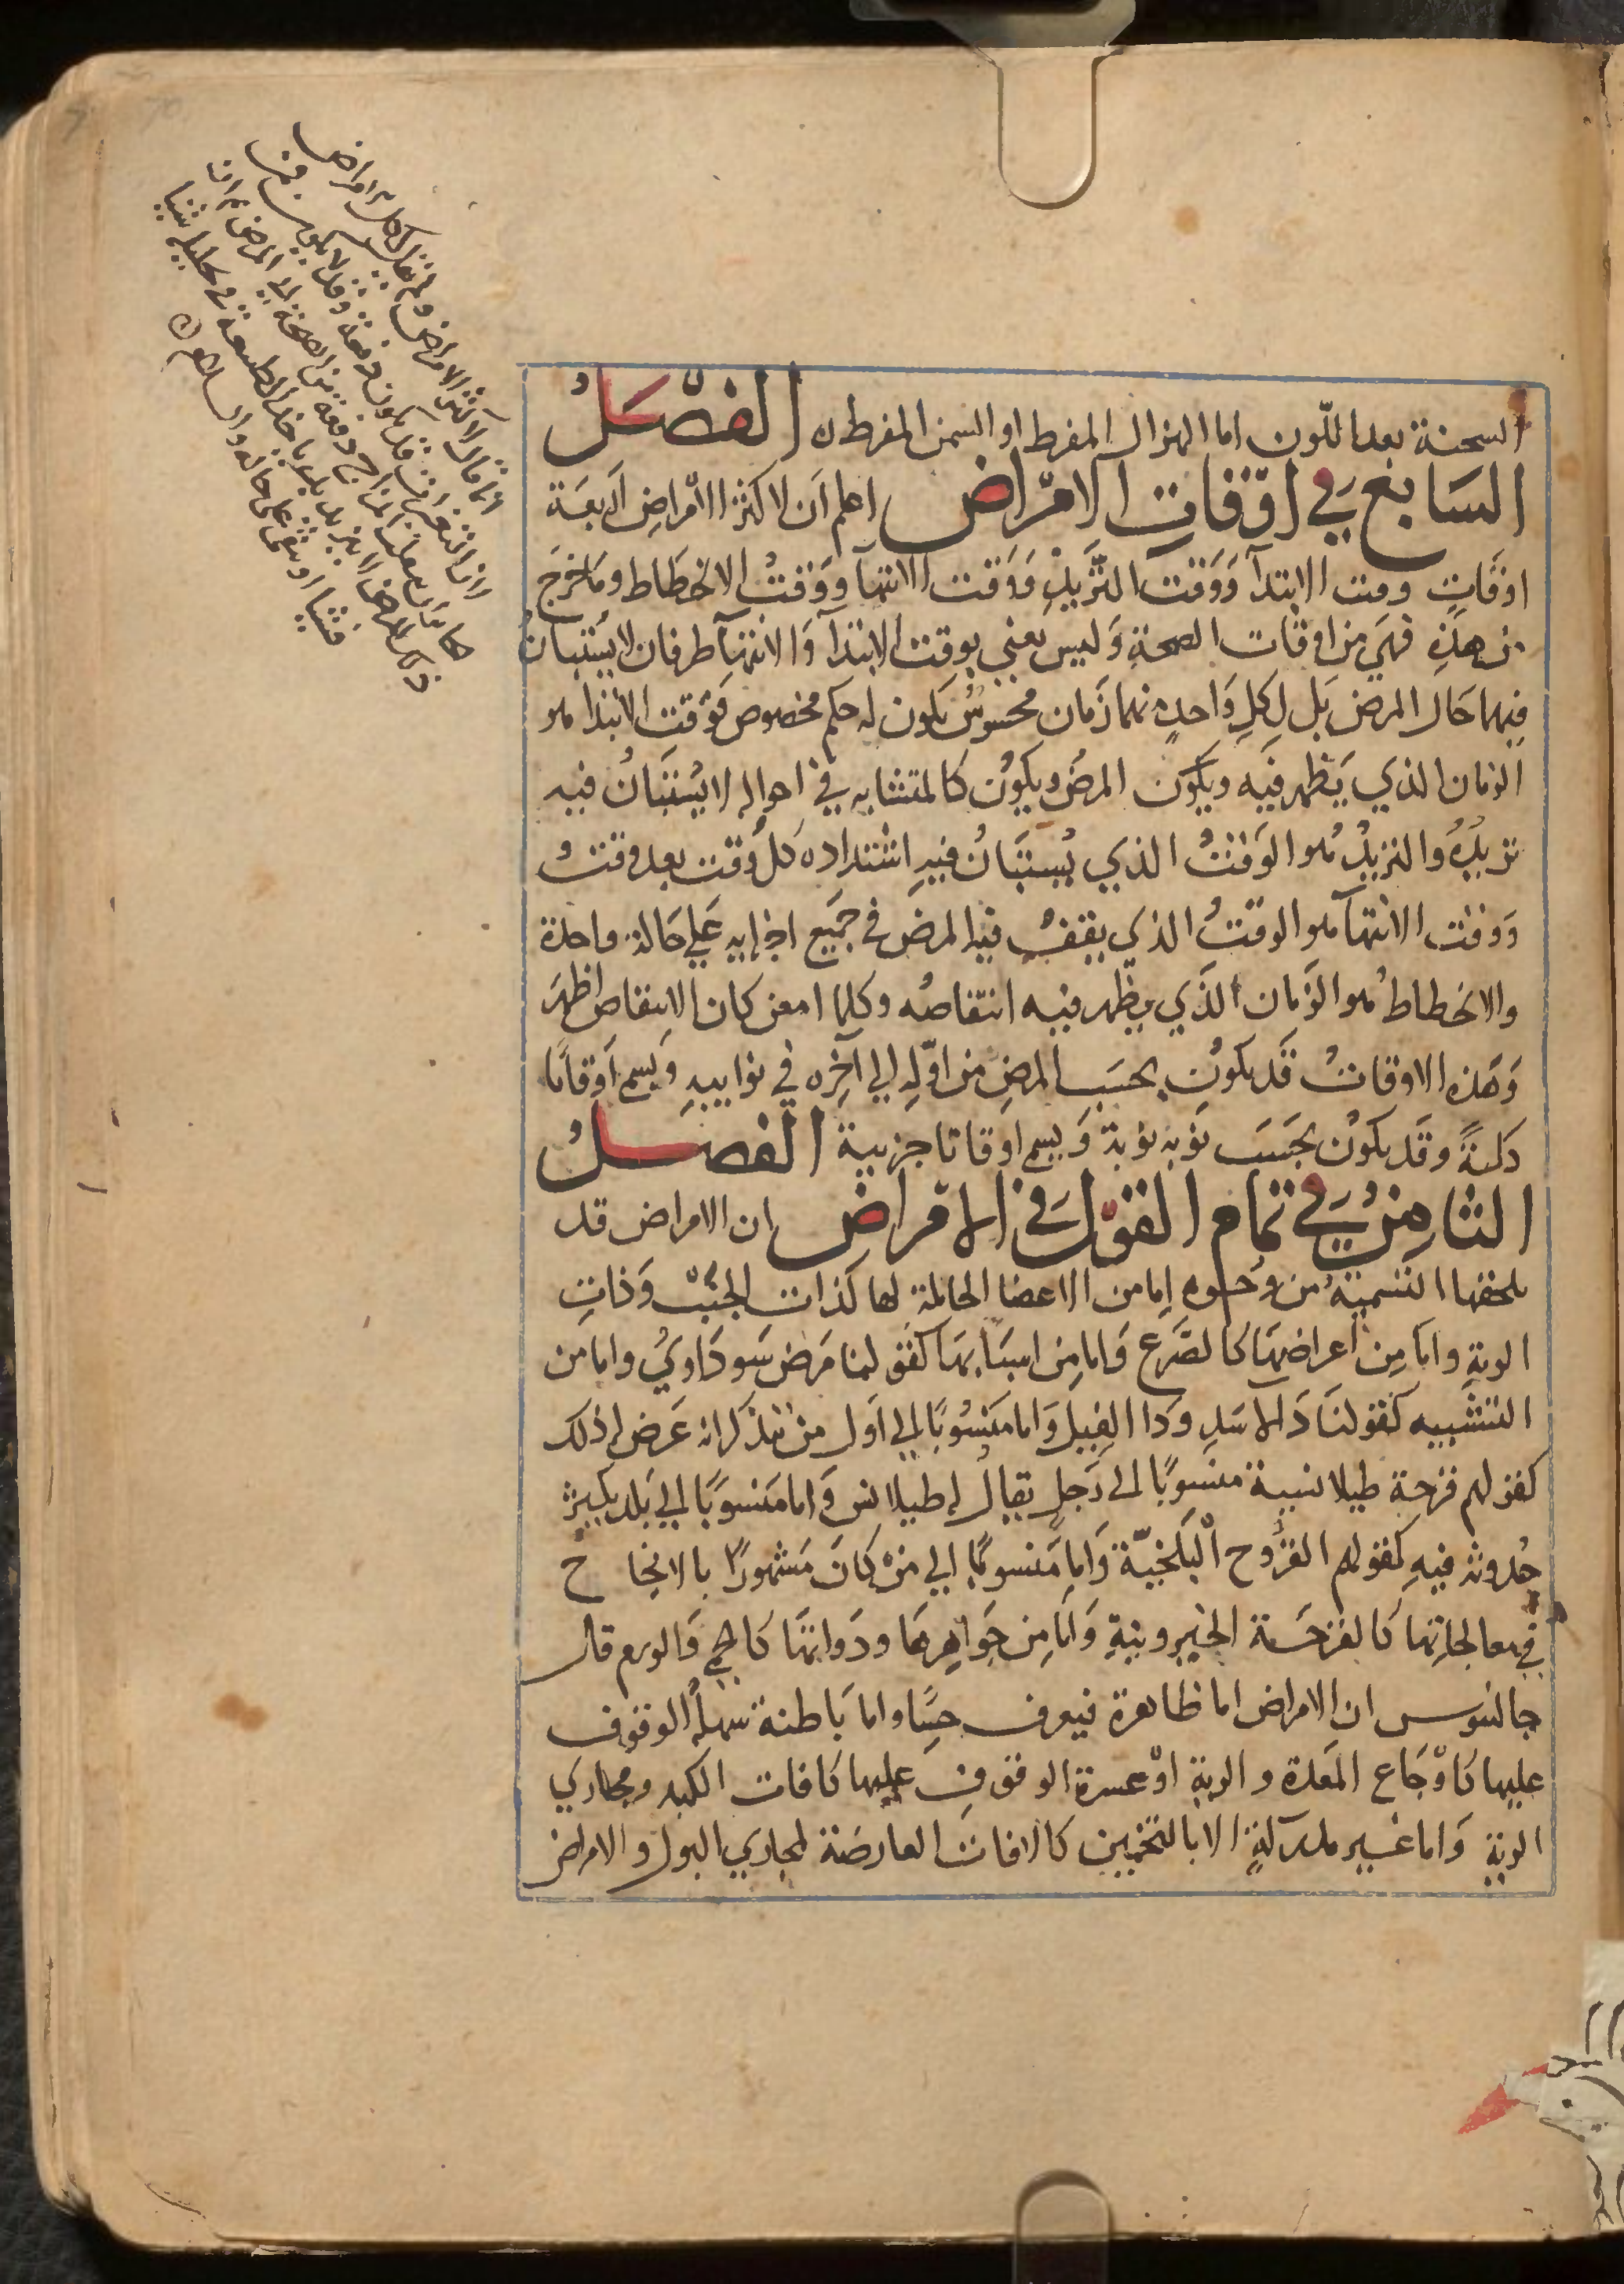 السحنة بعد اللون اما الهزال المفرط او السمن المفرط ه الفصل
السابع في اوقات الامراض اعلم أن لاكثر الأمراض أربعة
اوقات وقت الابتدآ ووقت التزيد ووقت الانتهآ ووقت الانحطاط وما خرج
من هذه فهي من اوقات الصحة وليس نعني بوقت الابتدآ والانتهآ طرفان لا يستبان
فيهما حال المرض بل لكل واحد منهما زمان محسوس يكون له حكم مخصوص فوقت الابتدا هو
الزمان الذي يظهر فيه ويكون المرض ويكون كالمتشابه في احواله لا يستبان فيه
تزيده والتزيد هو الوقت الذي يستبان فيه اشتداده كل وقت بعد وقت
ووقت الانتهآ هو الوقت الذي يقف فيه المرض في جميع اجزايه علي حالة واحدة
والانحطاط هو الزمان الذي يظهر فيه انتقاصه وكلما امعن كان الانتقاص اظهر
وهذه الاوقات قد يكون بحسب المرض من اوله الي آخره في نوايبه ويسم اوقاتا
كلية وقد يكون بحسب نوبه نوبة ويسم اوقاتا جزيية الفصل
الثامن في تمام القول في الامراض ان الامراض قد
يلحقها التسمية من وجوه اما من الاعضا الحاملة لها كذات الجنب وذات
الرية واما من اعراضها كالصرع واما من اسبابها كقولنا مرض سوداوي واما من
التشبيه كقولنا دا الاسد ودا الفيل واما منسوبا الي اول من يذكر انه عرض له ذلك
كقولهم قرحة طيلانيية منسوبا الي رجل يقال له طيلانس واما منسوبا الي بلد يكثر
حدوثه فيه كقولهم القروح البلخيّة واما منسوبا الي من كان مشهورا بالانجاح
في معالجاتها كالقرحة الخيرونية واما من جواهرها وذواتها كالحمي والورم قال
جالنوس ان الامراض اما ظاهرة فيعرف حسا واما باطنة سهلة الوقوف
عليها كاوجاع المعدة والرية او عسرة الوقوف عليها كافات الكبد ومجاري
الرية واما غير مدركة الا بالتخمين كالافات العارضة لمجاري البول والامراض
انما قال لاكثر الامراض ولم يقل لكل امراض